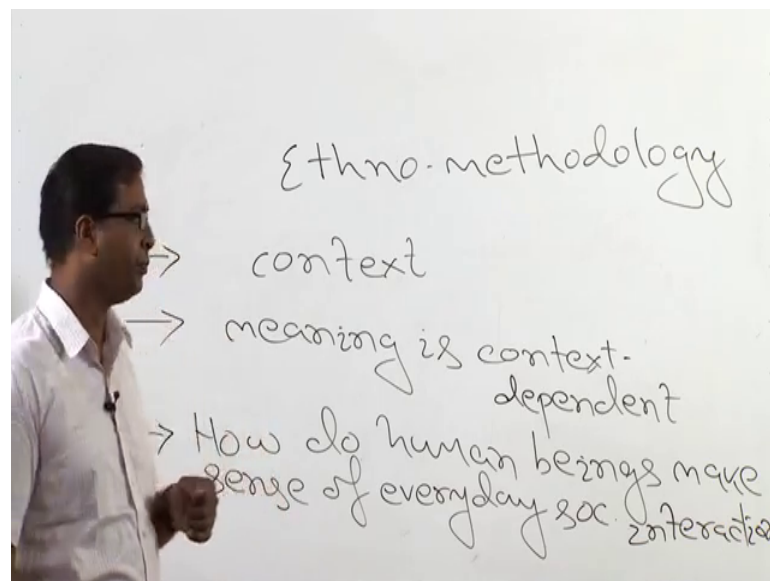 Ethno-methodology
→ context
→ meaning is context-
dependent
→ How do human beings make
sense of everyday soc. interactio